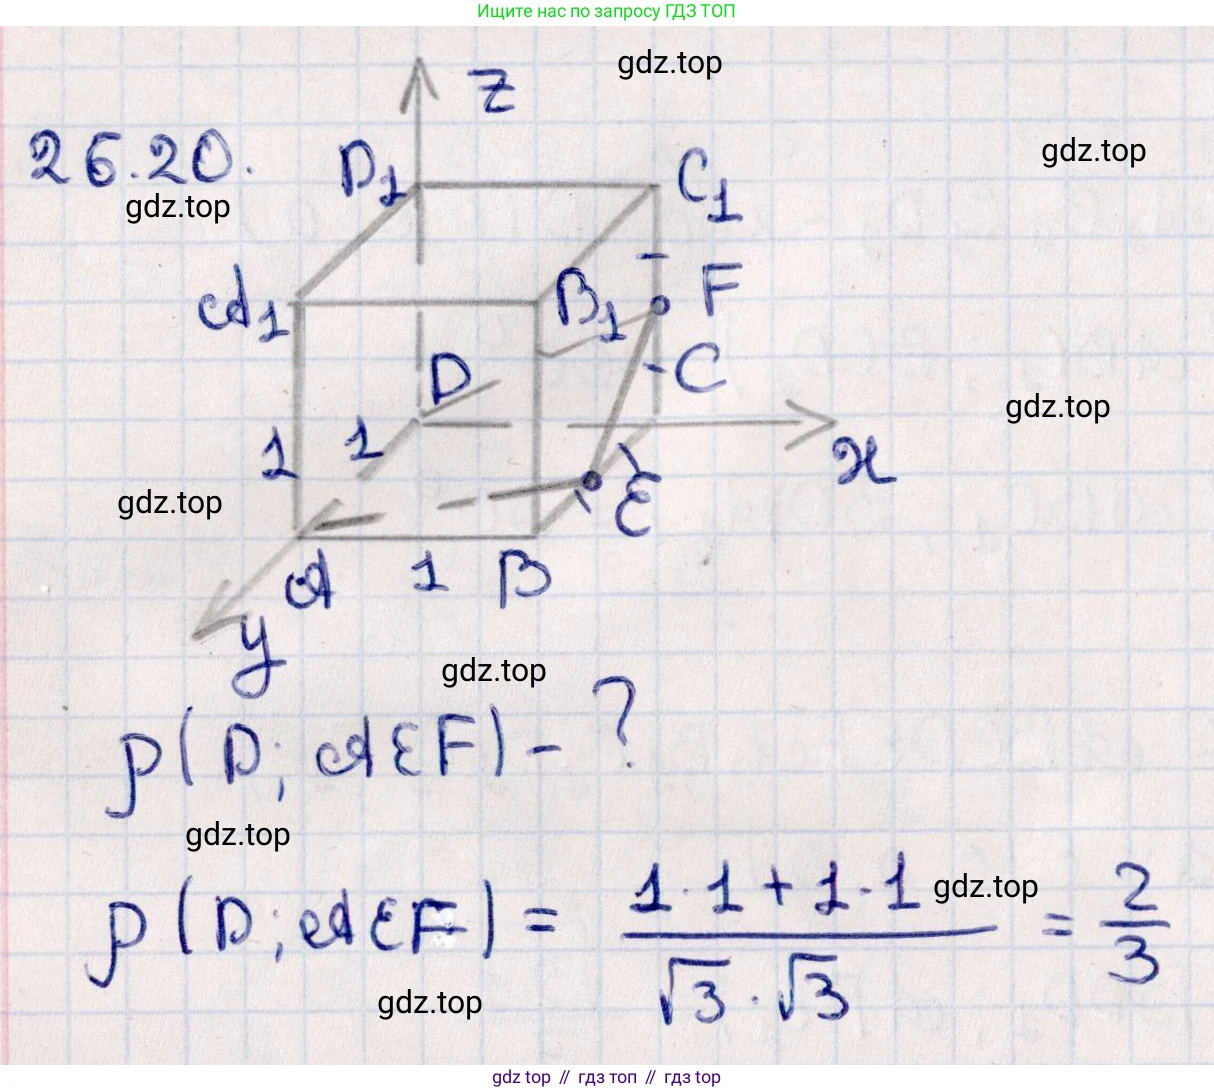 Ищите нас по запросу ГДЗ ТОП
gdz.top
z
26.20.
D1
C1
gdz.top
gdz.top
A1
B1
F
D
C
gdz.top
1
1
x
gdz.top
E
A
1
B
y
gdz.top
ρ(D; AEF) - ?
gdz.top
ρ(D; AEF) = (1·1 + 1·1)/(√3·√3) = 2/3
gdz.top
gdz.top
gdz top // гдз топ // gdz top